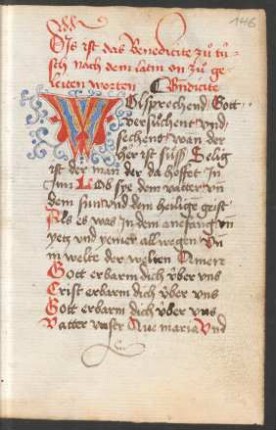 146
Dis ist das Benedicite zuͦ tü-
sch nach dem latin vn zuͦ ge
leiten worten Benedicite
Wolsprechend Gott
versuͦchent vnd
sechent wan der
her ist süss Selig
ist der man der da hoffet in
inn Lob sye dem vatter vn̄
dem sun vnd dem heilige geist
Als es was in dem anefang vn̄
yetz vnd yemer allwegen Vn̄
in welte der welten Amen
Gott erbarm dich über vns
Crist erbarm dich über vns
Gott erbarm dich über vns
Vatter vnser Aue maria Vnd